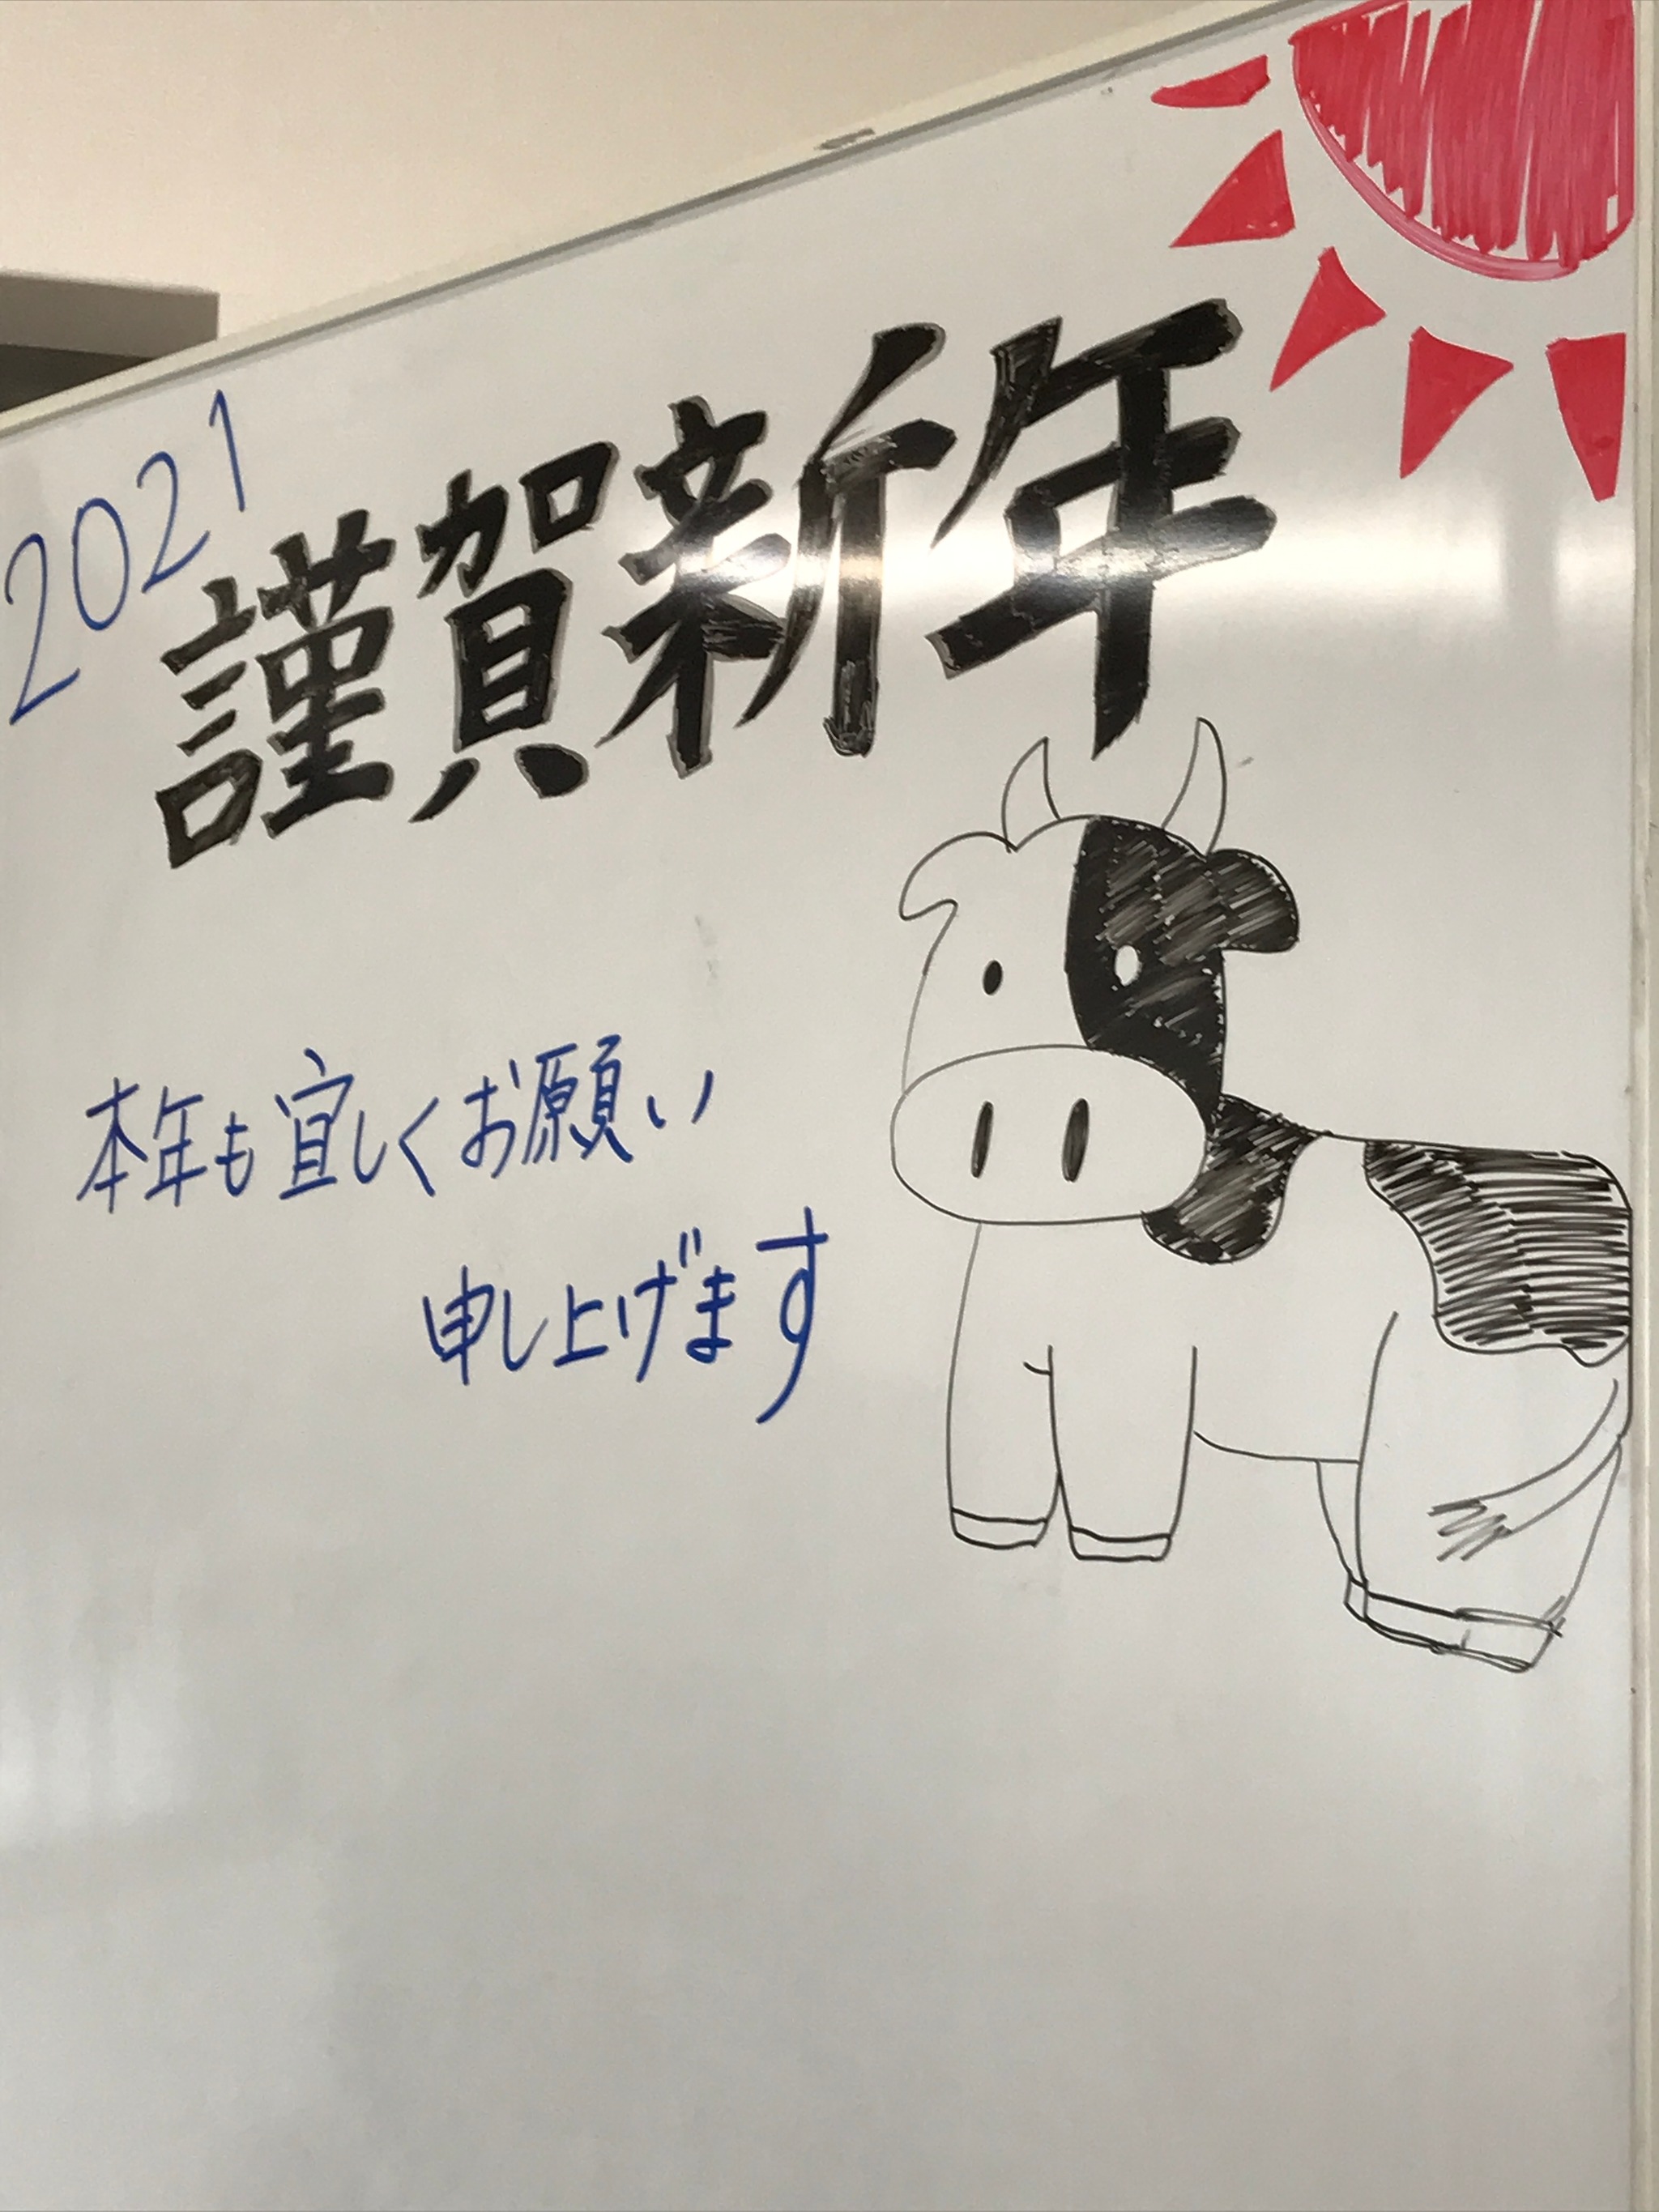 2021
謹賀新年
本年も宜しくお願い
申し上げます